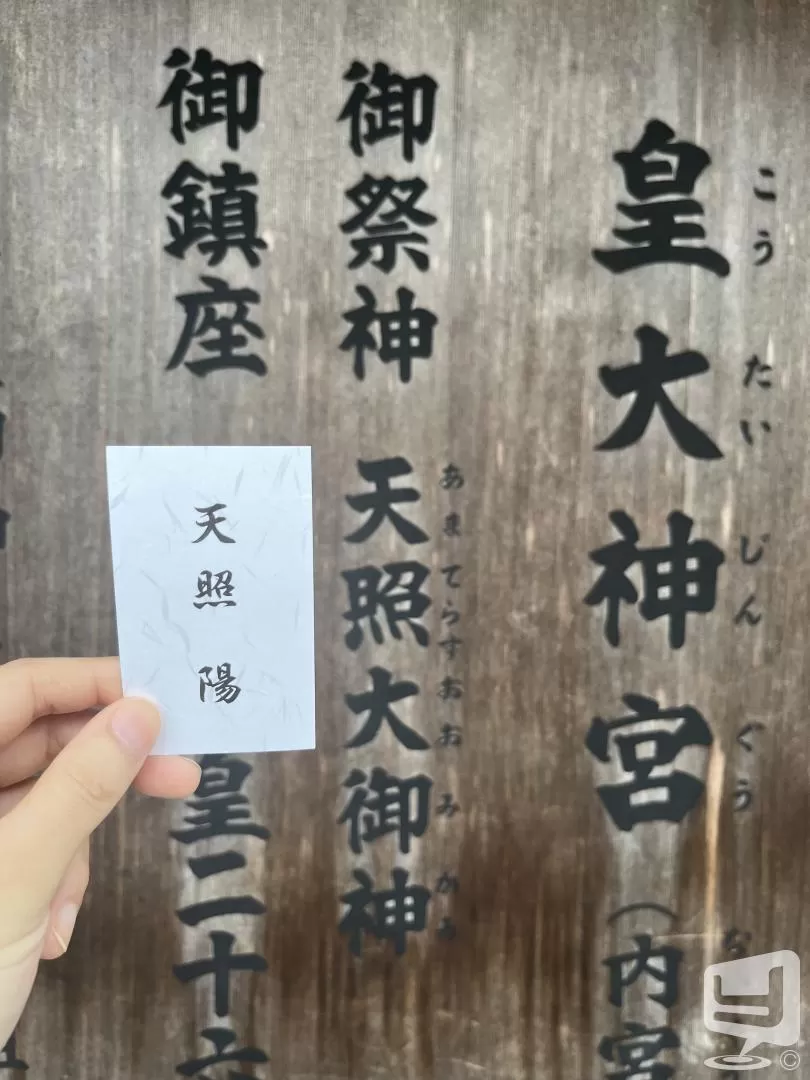 皇大神宮（内宮
こうたいじんぐう
御祭神 天照大御神
あまてらすおおみかみ
御鎮座
皇二十六
天照 陽